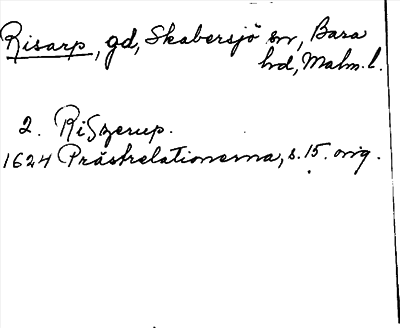 Risarp, gd, Skabersjö sn, Bara
hd, Malm. l.
2. Riszerup.
1624 Prästrelationerna, s. 15. orig.